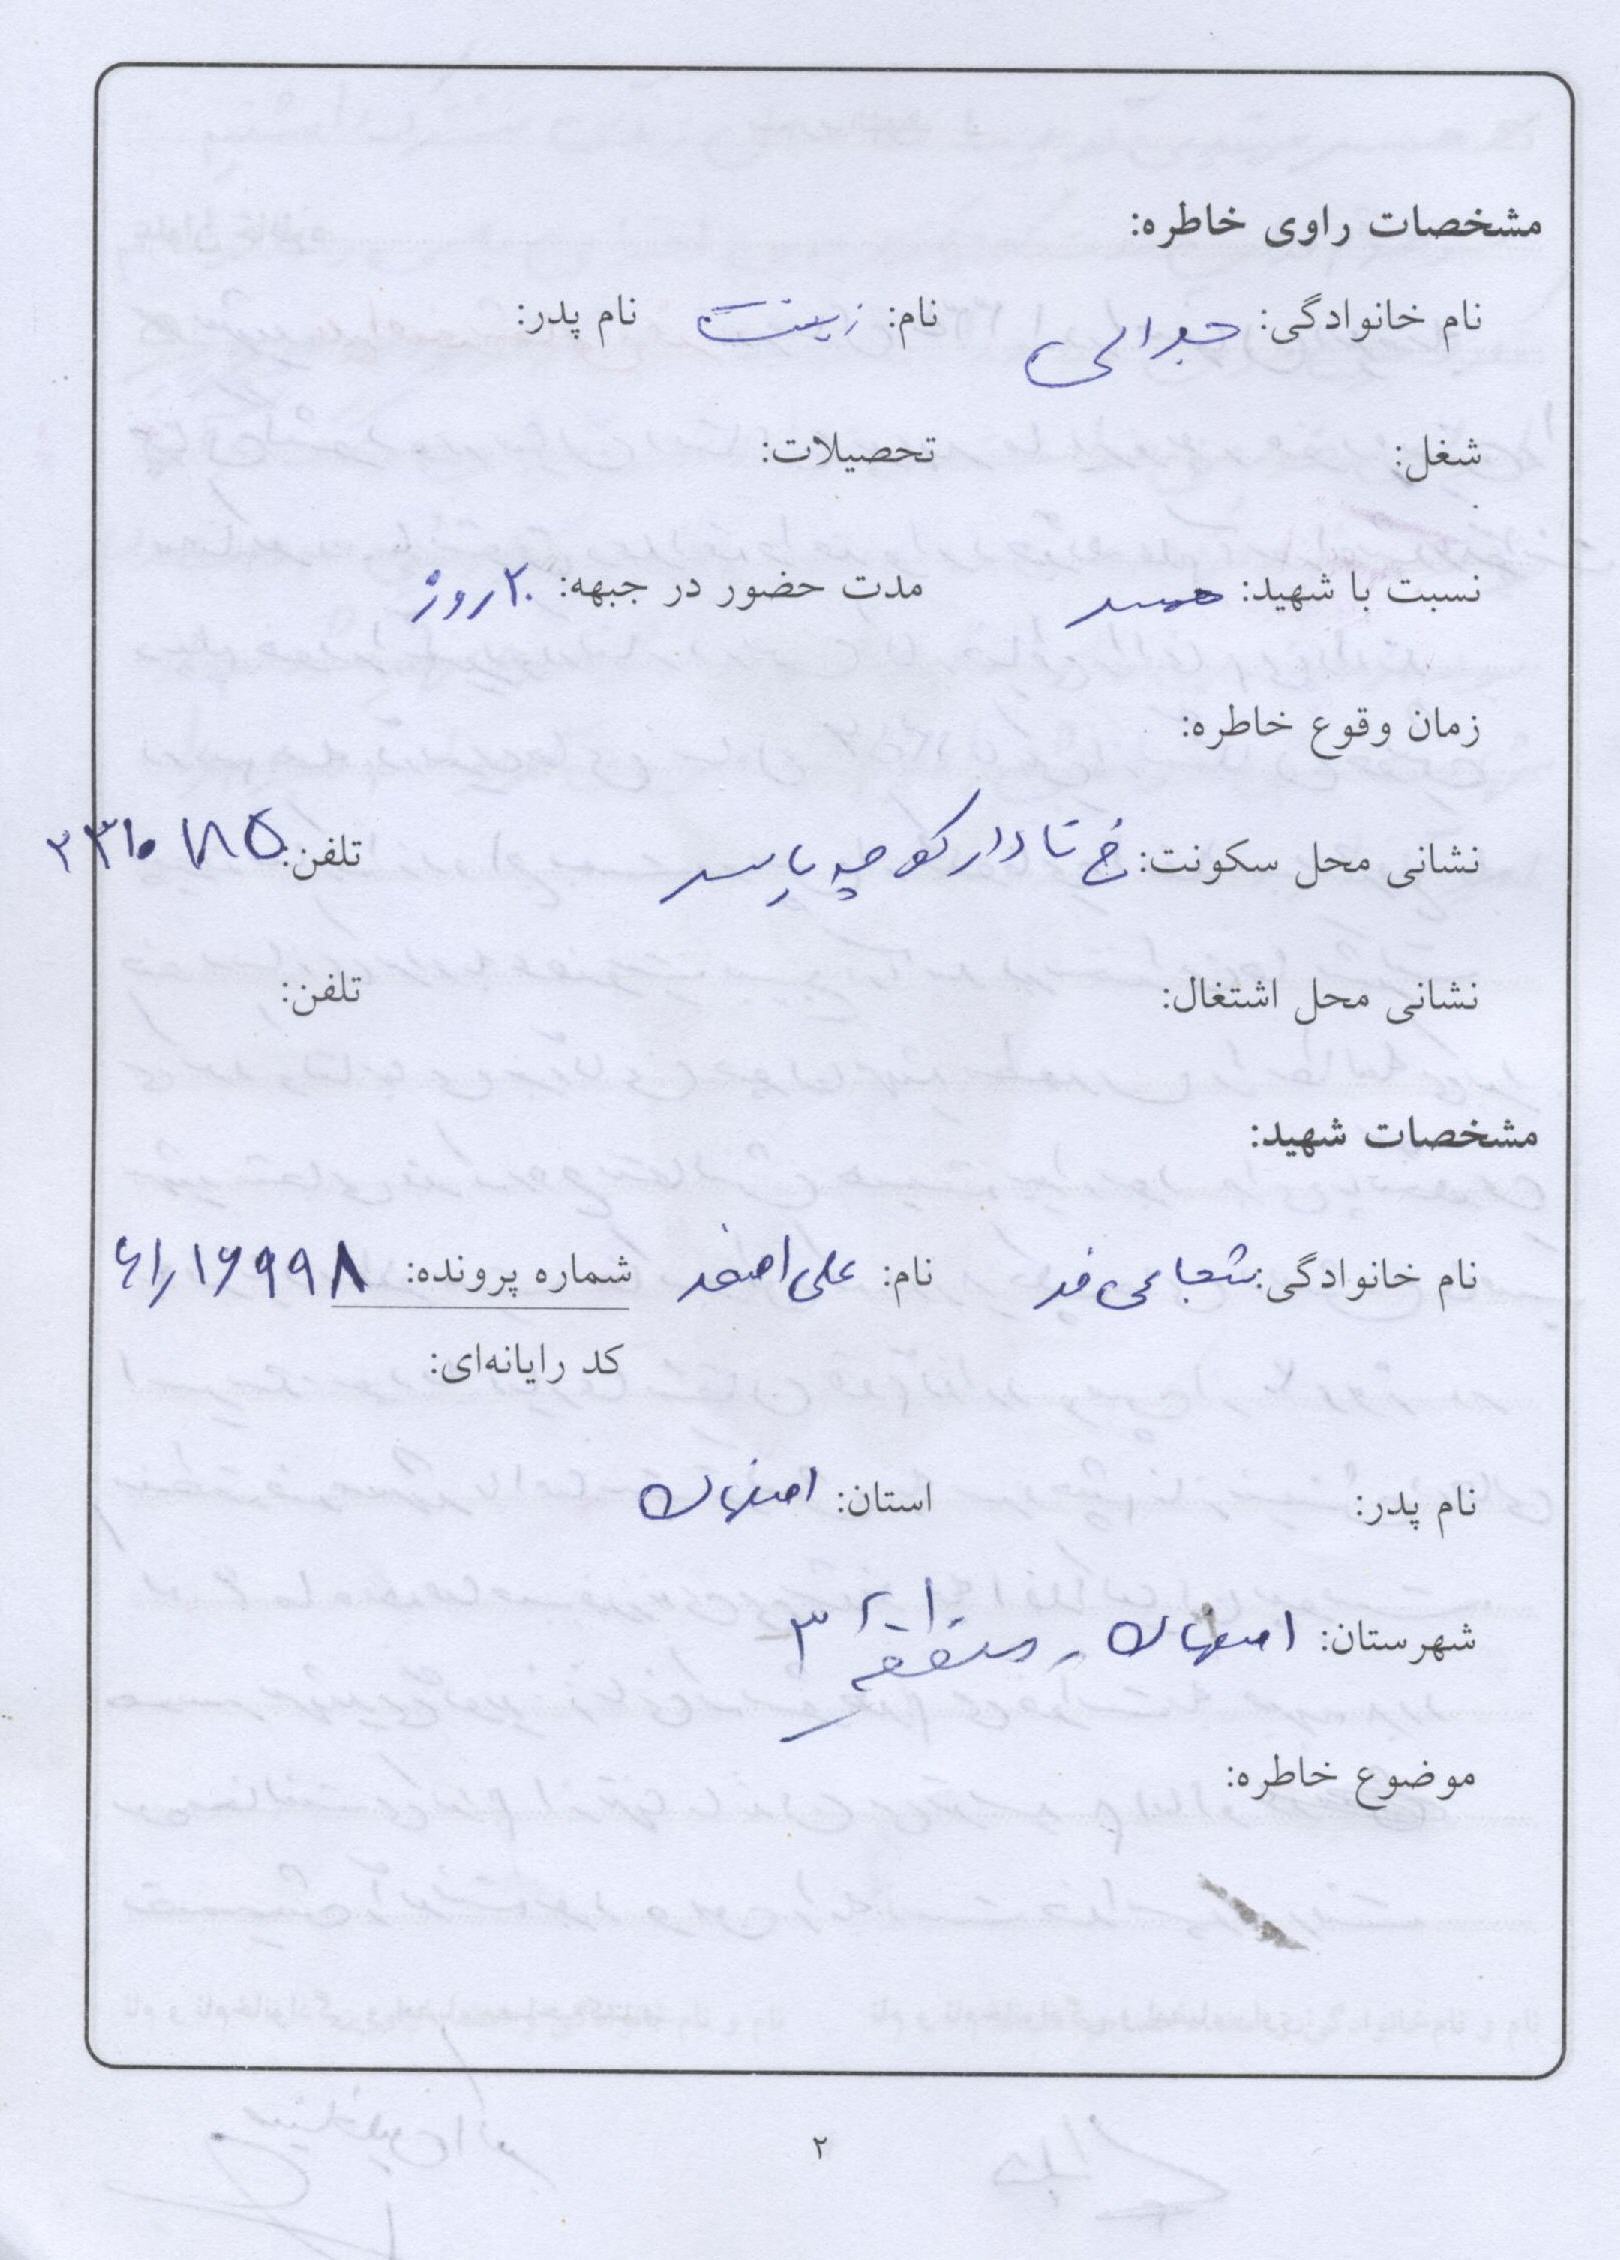 مشخصات راوی خاطره:
نام خانوادگی: جبرالی نام: زینت نام پدر:
شغل: تحصیلات:
نسبت با شهید: همسر مدت حضور در جبهه: ۲۰ روز
زمان وقوع خاطره:
نشانی محل سکونت: کوچه یاسر تلفن:
نشانی محل اشتغال: تلفن:
مشخصات شهید:
نام خانوادگی: شجاعی فر نام: علی اصغر شماره پرونده: ۶۱٫۱۶۹۹۸
کد رایانه‌ای:
نام پدر: استان: اصفهان
شهرستان: اصفهان - منطقه ۳
موضوع خاطره:
۲